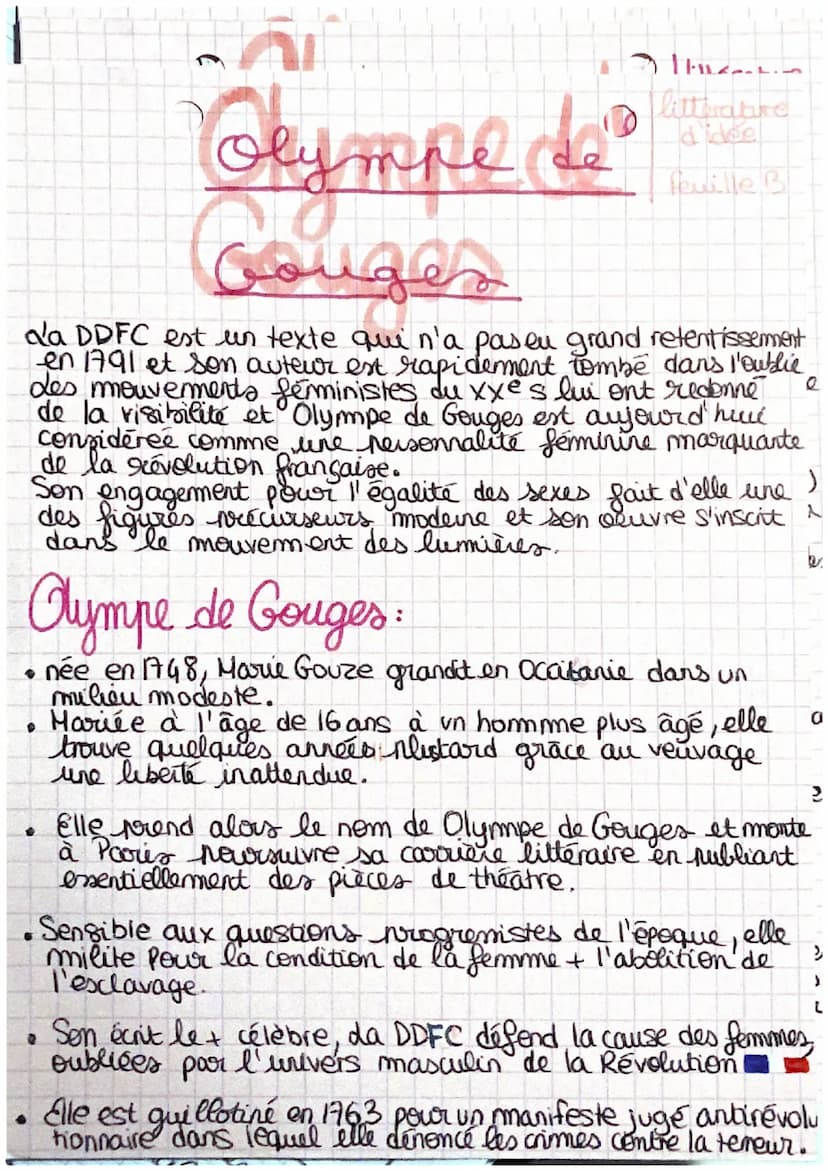 Olympe de
Gouges
littérature
d'idée
feuille B
La DDFC est un texte qui n'a pas eu grand retentissement
en 1791 et son auteur est rapidement tombé dans l'oublie
des mouvements féministes du xxe s lui ont redonné
de la visibilité et Olympe de Gouges est aujourd'hui
considéréé comme une personnalité féminine marquante
de la révolution française.
Son engagement pour l'égalité des sexes fait d'elle une
des figures précurseurs moderne et son oeuvre s'inscit
dans le mouvement des lumières.
Olympe de Gouges :
• née en 1748, Marie Gouze grandit en Occitanie dans un
milieu modeste.
• Mariée à l'âge de 16 ans à un hommme plus âgé, elle
trouve quelques années plustard grâce au veuvage
une liberté inattendue.
• Elle prend alors le nom de Olympe de Gouges et monte
à Paris poursuivre sa carrière littéraire en publiant
essentiellement des pièces de théatre.
• Sensible aux questions progremistes de l'époque, elle
milite pour la condition de la femme + l'abolition de
l'esclavage.
• Son écrit le + célèbre, La DDFC défend la cause des femmes
oubliées par l'univers masculin de la Révolution
• Elle est guillotiné en 1763 pour un manifeste jugé antirévolu
tionnaire dans lequel elle dénonce les crimes contre la terreur.